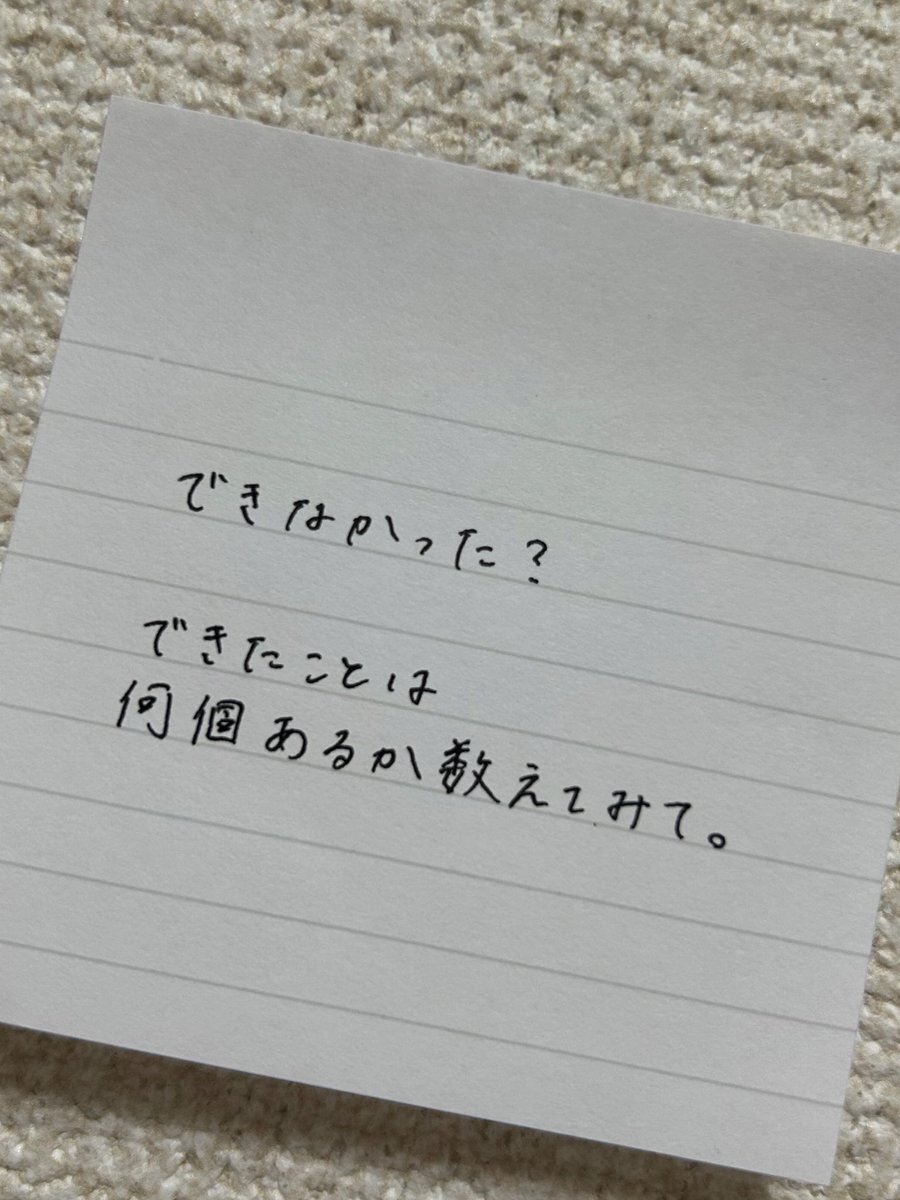 できなかった?
できたことは
何個あるか数えてみて。